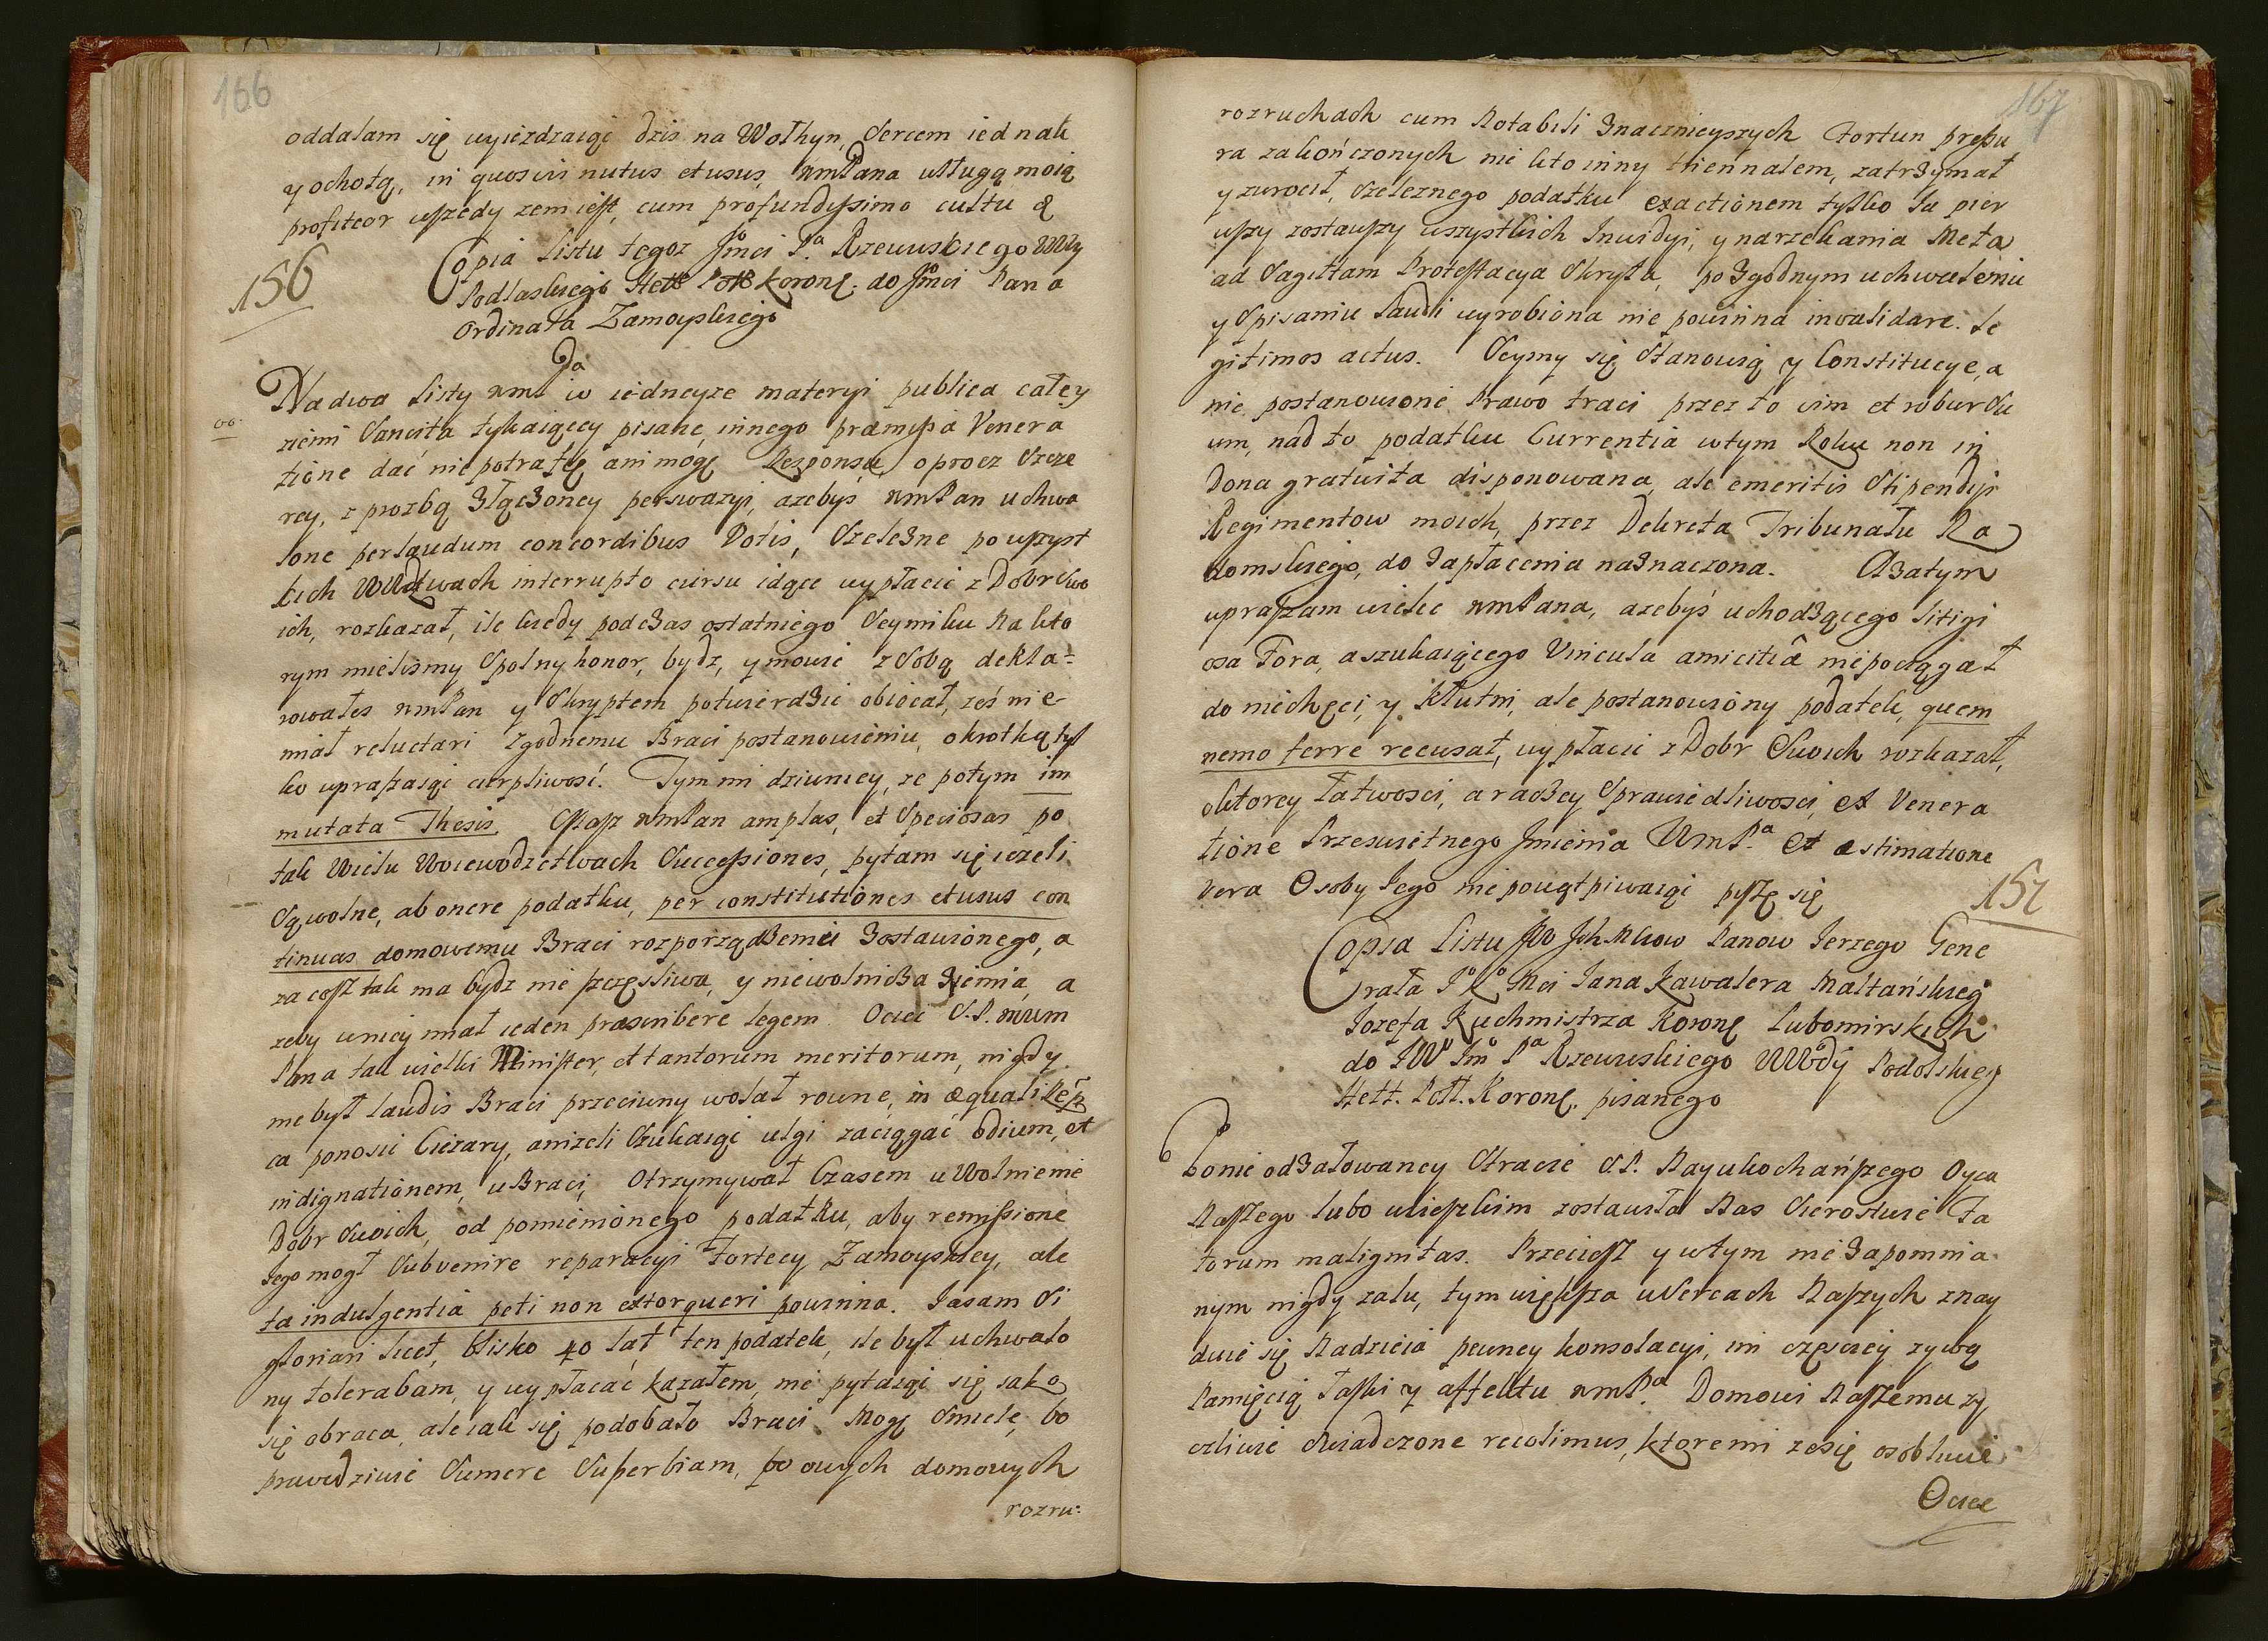 166
oddalam się wyiezdzaiąc dzis na Wołhyn, Sercem iednak
y ochotą, in quosvis nutus et usus, WmPana usługą moią
profiteor wszędy zem iest, cum profundissimo cultu &
156
Copia Listu tegoż Jmci Pa Rzewuskiego Wdy
Podlaskiego Hett Poll: Koronę. do Jmci Pana
Ordinata Zamoyskiego
Na dwa Listy WmPa w iedneyze materyi publica całey
ziemi Sancita tykaiącey pisane, innego præmissa Venera
tione dać nie potrafię ani mogę Responsu, oprocz Szcze
rey, z prozbą złączoney perswazyi, azebyś WmPan uchwa
lone per laudum concordibus Votis, Szelezne po wszyst
kich Wdztwach interrupto cursu idące wypłacić z Dobr Swo
ich, rozkazał, ile kiedy podczas ostatniego Seymiku na kto
rym mielismy Spolny honor, bydz, y mowić z Sobą dekla=
rowałes WmPan y Skryptem potwierdzić obiecał, żeś nie
miał reluctari zgodnemu Braci postanowieniu, okrotką tyl
ko upraszaiąc cierpliwość. Tym mi dziwniey, ze potym im
mutata Thesis. Masz WmPan amplas, et Speciosas po
tak Wielu Woiewodztwach Successiones, pytam się iezeli
Są wolne, ab onere podatku, per constitutiones et usus con
tinuas domowemu Braci rozporządzeniu Zostawionego, a
za cosz tak ma bydz nie szczęsliwa, y niewolnicza Ziemia, a
zeby w niey miał ieden præscribere legem. Ociec S.P. WmM
Pana tak wielki Minister, et tantorum meritorum, nigdy
nie był laudis Braci przeciwny wolał rowne, in æquali
ca ponosić Cięzary, anizeli Szukaiąc ulgi zaciągać Odium, et
indignationem, u Braci, Otrzymywał Czasem uWolnienie
Dobr Swoich, od pomienionego podatku, aby remissione
Iego mogł Subvenire reparacyi Fortecy Zamoyskiey, ale
ta indulgentia peti non extorqueri powinna. Ia sam Si
gloriari licet, blisko 40 lat ten podatek, ile był uchwalo
ny tolerabam, y wypłacać kazałem, nie pytaiąc się iako
się obraca, ale iak się podobało Braci. Mogę Smiele, bo
prawdziwie Sumere Superbiam, po owych domowych
rozru:
167
rozruchach cum Notabili Znacznieyszych Fortun pressu
ra zakończonych nie kto inny triennalem, zatrzymał
y zwrocił, Szeleznego podatku exactionem tylko Ia pier
wszy zostawszy wszystkich Inwidyi, y narzekania Meta
ad Sagittam Protestacya Skryta, po Zgodnym uchwaleniu
y Spisaniu Laudi wyrobiona nie powinna invalidare. le
gitimos actus. Seymy się Stanowią y Constitucye, a
nie postanowione Prawo traci przez to vim et robur Su
um, nad to podatku Currentia w tym Roku non in
Dona gratuita disponowana, ale emeritis Stipendys
Regimentow moich, przez Dekreta Tribunału Ra
domskiego, do Zapłacenia naznaczona. Azatym
upraszam wielce WmPana, azebyś uchodzącego litigi
osa Fora, a szukaiącego Vincula amicitiâ nie pociągał
do niechęci, y kłutni, ale postanowiony podatek, quem
nemo ferre recusat, wypłacić z Dobr Swoich rozkazał,
oktorey łatwosci, a raczey Sprawiedliwosci, et Venera
tione Przeswietnego Jmienia WmPa et æstimatione
Vera Osoby Iego nie powątpiwaiąc piszę się
157
Copia Listu JW Ich Mciow Panow Ierzego Gene
rała Io Ko Mci Iana Kawalera Maltańskieg
Iozefa Kuchmistrza Koronę Lubomirskich
do JWo Jmo Pa Rzewuskiego WWody Podolskieg
Hett. Poll. Koronę. pisanego
Ponieodżałowaney Stracie S.P. Nayukochańszego Oyca
Naszego lubo wcieszkim zostawiła Nas Sieroctwie Fa
torum malignitas. Przeciesz y wtym nie Zapomnia
nym nigdy zalu, tym większa wSercach Naszych znay
duie się Nadzieia pewney konsolacyi, im częsciey zywą
Pamięcią łaski y affektu WmPa Domowi Naszemu zy
czliwie Swiadczone recolimus, ktoremi zesię osobliwie
Ociec